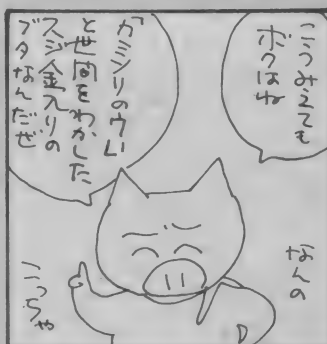 こうみえても
ボクはね
「カミソリの
と世間をわかした
スジ金入りの
ブタなんだぜ
なんの
こっちゃ